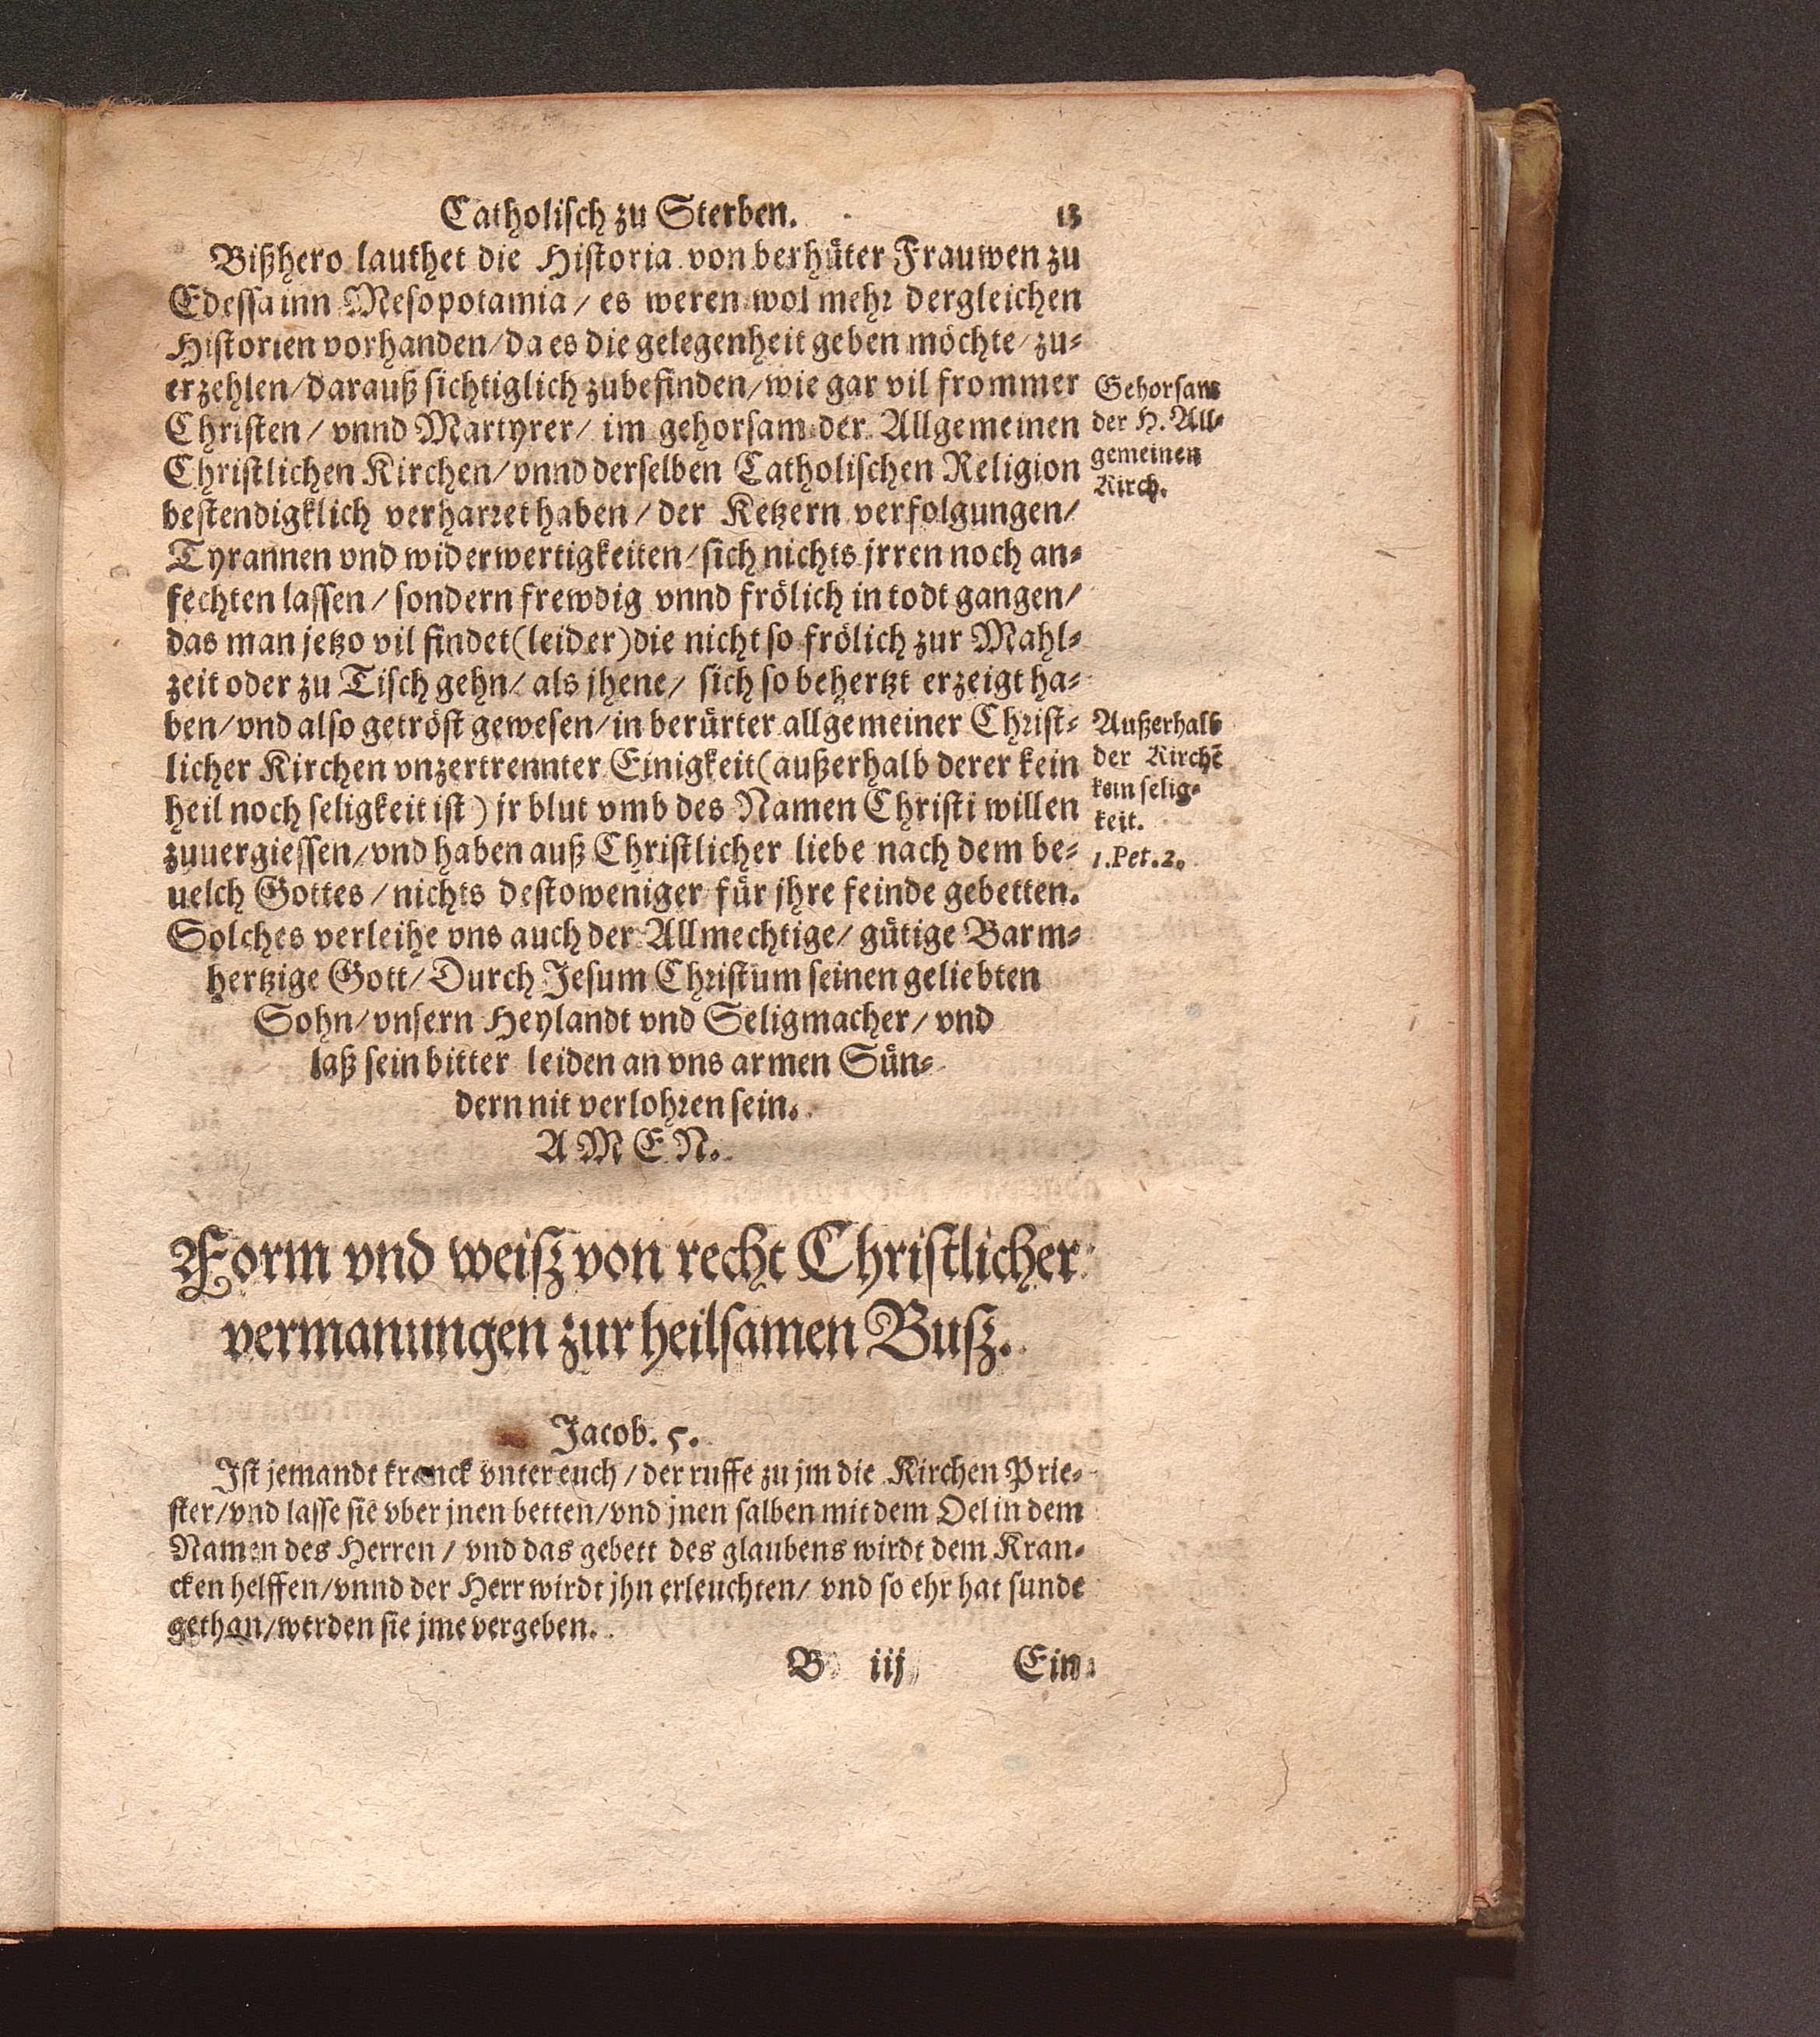 Catholisch zu Sterben. 13
Bißhero lauthet die Historia von berhüter Frauwen zu
Edessa inn Mesopotamia / es weren wol mehr dergleichen
Historien vorhanden / da es die gelegenheit geben möchte / zu-
erzehlen / darauß sichtiglich zubefinden / wie gar vil frommer
Christen / vnnd Martyrer / im gehorsam der Allgemeinen
Christlichen Kirchen / vnnd derselben Catholischen Religion
bestendigklich verharret haben / der Ketzern verfolgungen /
Tyrannen vnd widerwertigkeiten / sich nichts jrren noch an-
fechten lassen / sondern frewdig vnnd frölich in todt gangen /
das man jetzo vil findet (leider) die nicht so frölich zur Mahl-
zeit oder zu Tisch gehn / als jhene / sich so behertzt erzeigt ha-
ben / vnd also getröst gewesen / in berürter allgemeiner Christ-
licher Kirchen vnzertrennter Einigkeit (außerhalb derer kein
heil noch seligkeit ist) jr blut vmb des Namen Christi willen
zuuergiessen / vnd haben auß Christlicher liebe nach dem be-
uelch Gottes / nichts destoweniger für jhre feinde gebetten.
Solches verleihe vns auch der Allmechtige / gütige Barm-
hertzige Gott / Durch Jesum Christum seinen geliebten
Sohn / vnsern Heylandt vnd Seligmacher / vnd
laß sein bitter leiden an vns armen Sün-
dern nit verlohren sein.
AMEN.
Gehorsam
der H. All-
gemeinen
Kirch.
Außerhalb
der Kirchē
kein selig-
keit.
1. Pet. 2.
Form vnd weisz von recht Christlicher
vermanungen zur heilsamen Busz.
Jacob. 5.
Ist jemandt kranck vnter euch / der ruffe zu jm die Kirchen Prie-
ster / vnd lasse sie vber jnen betten / vnd jnen salben mit dem Oel in dem
Namen des Herren / vnd das gebett des glaubens wirdt dem Kran-
cken helffen / vnnd der Herr wirdt jhn erleuchten / vnd so ehr hat sunde
gethan / werden sie jme vergeben.
B iij Ein